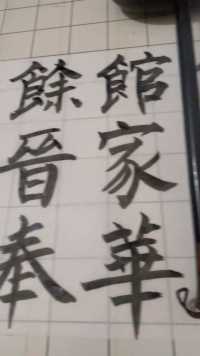 館家華
餘晉奉